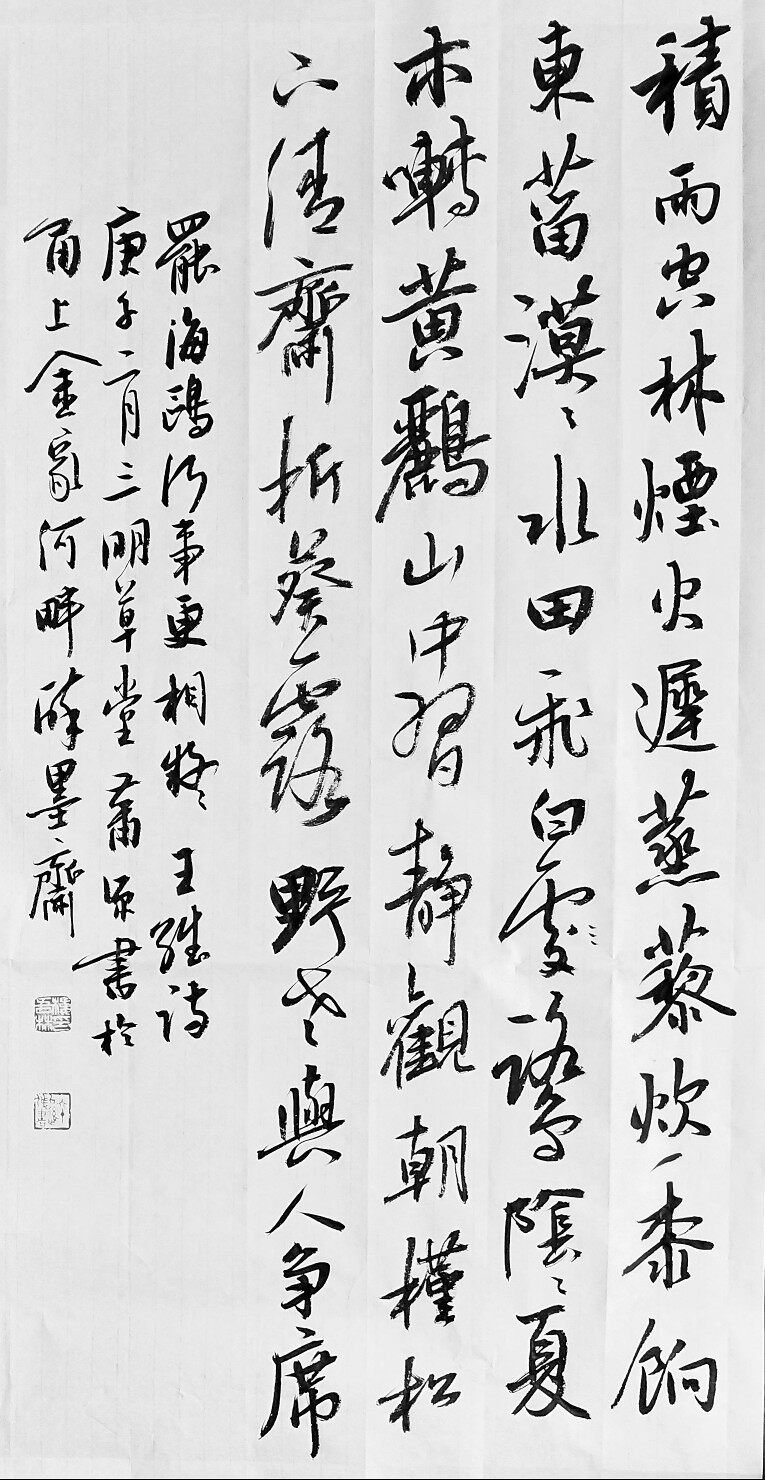 積雨空林煙火遲蒸藜炊黍餉
東菑漠〻水田飛白鷺陰〻夏
木囀黃鸝山中習靜觀朝槿松
下清齋折葵露野老與人争席
罷海鷗何事更相疑王維詩
庚子二月三明草堂書於
甬上金家河畔醉墨齋